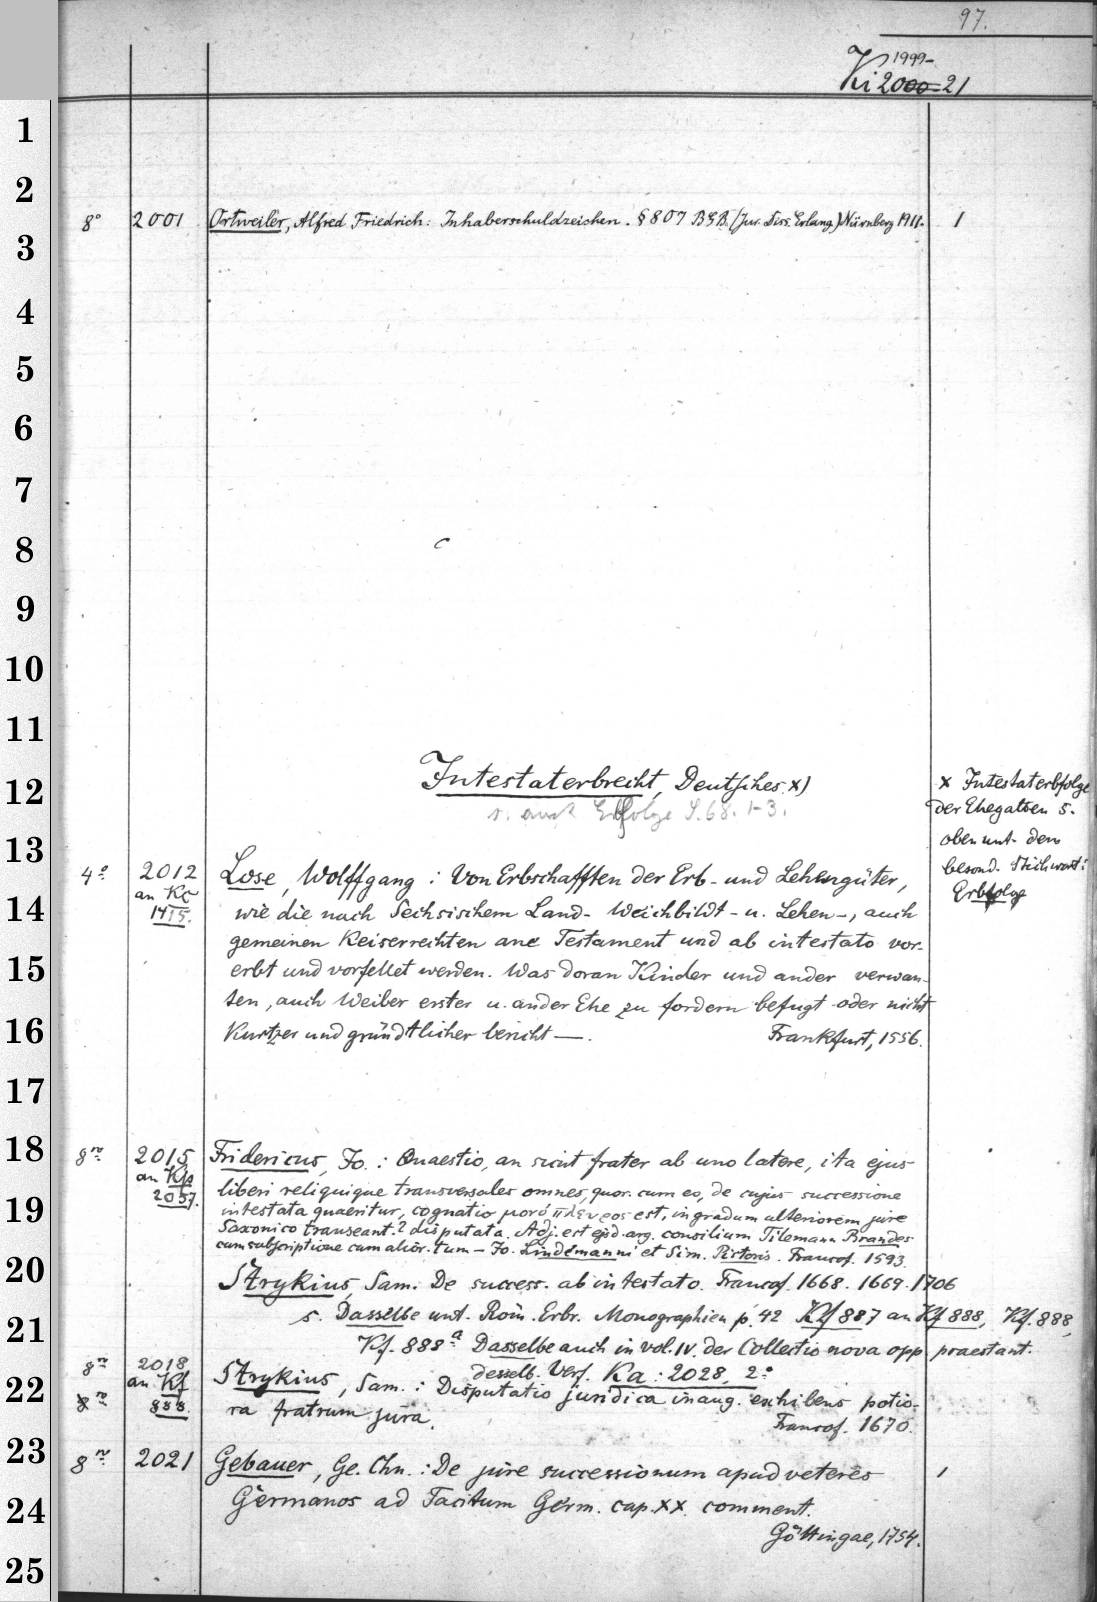 97.
1999-
Ki 2000-21
8° 2001 Ortweiler, Alfred Friedrich: Inhaberschuldzeichen. § 807 BGB. (Jur. Diss. Erlang.) Nürnberg 1911. 1
Intestaterbrecht, Deutsches. x)
s. auch Erbfolge S. 68. 1-3.
x Intestaterbfolge
der Ehegatten s.
oben unt. dem
besond. Stichwort:
Erbfolge
4° 2012 Lose, Wolffgang: Von Erbschafften der Erb- und Lehengüter,
an Kc
1415.
wie die nach Sechsischem Land- Weichbildt- u. Lehen-, auch
gemeinen Keiserrechten ane Testament und ab intestato vor-
erbt und vorfellet werden. Was doran Kinder und ander verwan-
ten, auch Weiber erster u. ander Ehe zu fordern befugt oder nicht
Kurtzer und gründtlicher bericht —. Frankfurt, 1556.
8ⁿ 2015 Fridericus, Jo.: Quaestio, an sicut frater ab uno latere, ita ejus
an Kfs
2057.
liberi reliquique transversales omnes, quor. cum eo, de cujus successione
intestata quaeritur, cognatio est, in gradum ulteriorem jure
Saxonico transeant? disputata. Adj. est ejsd. arg. consilium Tilemann Brandes
cum subscriptione cum alior. tum - Jo. Lindemanni et Sim. Pistoris. Francof. 1593.
Strykius, Sam. De success. ab intestato. Francof. 1668. 1669. 1706
s. Dasselbe unt. Röm. Erbr. Monographien p. 42 Kf 887 an Kf 888, Kf. 888,
Kf. 888ª Dasselbe auch in vol. IV. der Collectio nova opp. praestant.
desselb. Verf. Ka: 2028, 2°
8ⁿ 2018 Strykius, Sam.: Disputatio juridica inaug. exhibens potio-
an Kf
8ⁿ 888.
ra fratrum jura. Francof. 1670.
8ⁿ 2021 Gebauer, Ge. Chn.: De jure successionum apud veteres 1
Germanos ad Tacitum Germ. cap. XX. comment.
Göttingae, 1754.
1
2
3
4
5
6
7
8
9
10
11
12
13
14
15
16
17
18
19
20
21
22
23
24
25